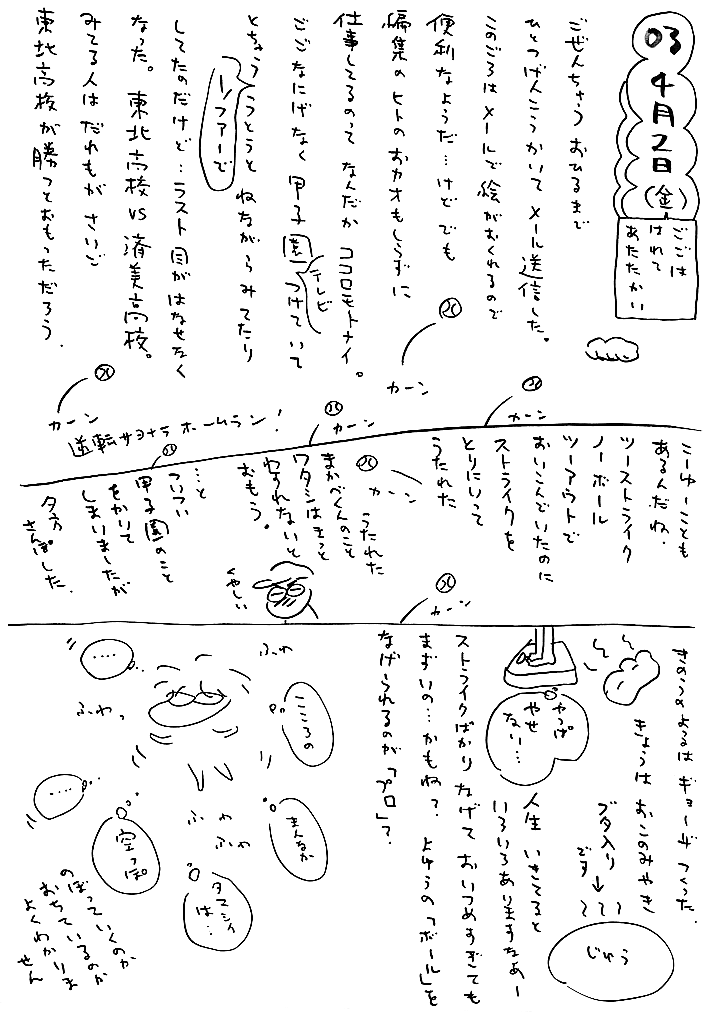 03 4月2日(金)
ごごは
はれて
あたたかい
ごぜんちゅう おひるまで
ひとつげんこうかいて メール送信した。
このごろはメールで絵がおくれるので
便利なようだ…けど でも
編集のヒトのおカオもしらずに
仕事してるのって なんだか ココロモトナイ。
ごごなにげなく 甲子園つけていて
テレビ
とちゅううとうと ねながらみてたり
ソファーで
してたのだけど…ラスト目がはなせなく
なった。 東北高校VS済美高校。
みてる人は だれもが さいご
東北高校が勝つとおもっただろう。
カーン
カーン
逆転サヨナラ ホームラン!
カーン
カーン
こーゆーことも
あるんだね。
ツーストライク
ノーボール
ツーアウトで
おいこんでいたのに
ストライクを
とりにいって
うたれた
カーン
うたれた
まかべくんのこと
ワタシはきっと
わすれないと
おもう。
…と
ついつい
甲子園のこと
をかりて
しまいましたが
夕方
さんぽした。
くやしい
カーン
きのうのよるは ギョーザ つくった。
きょうは おこのみやき
ブタ入り
です
じゅう
やっぱ
やせ
ない…
人生 いきてると
いろいろありますなあー
ストライクばかり なげて おいつめすぎても
まずいの…かもね?。 よゆうの「ボール」を
なげられるのが「プロ」?
ふわ
ふわっ
こころの
まんなか
ふわ
ふわ
タマシイ
は…
空っぽ
‥‥
‥‥
のぼっていくのか
おちているのか
よくわかりま
せん